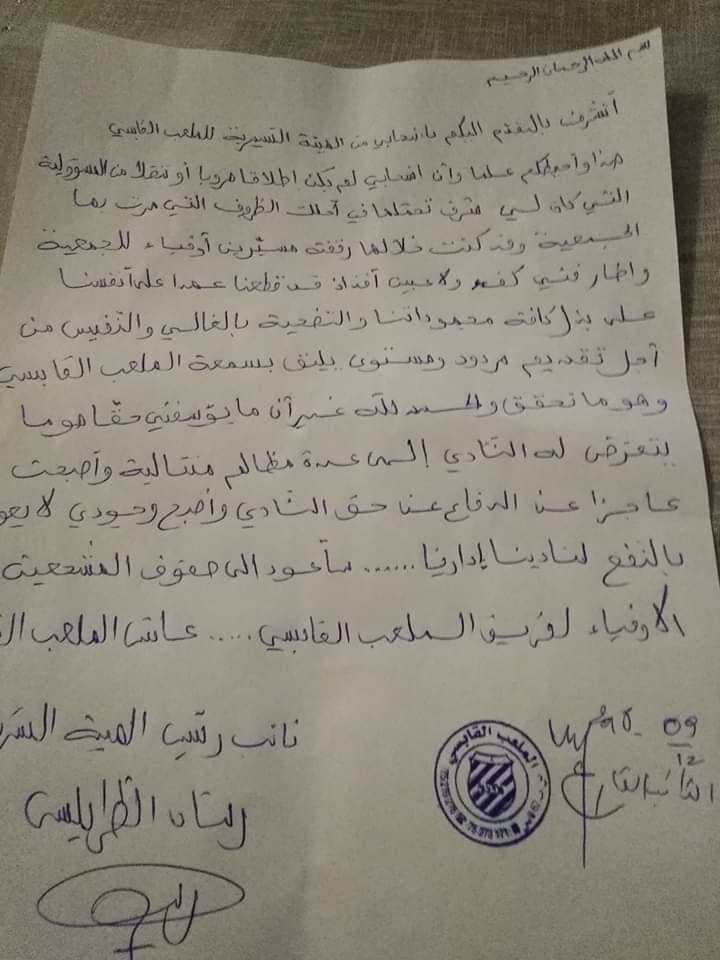 بسم الله الرحمان الرحيم
أتشرف بالتقدم اليكم بانسحابي من الهيئة التسييرية للملعب القابسي
هذا وأحيطكم علما وأن انسحابي لم يكن اطلاقا هروبا أو تنقلا من المسؤولية
التي كان لي شرف تحملها في أحلك الظروف التي مرت بها
الجمعية وقد كنت خلالها رفقة مسيّرين أوفياء للجمعية
واطار فني كفء ولاعبين أفذاذ قد قطعنا عهدا على أنفسنا
على بذل كافة مجهوداتنا والتضحية بالغالي والنفيس من
أجل تقديم مردود ومستوى يليق بسمعة الملعب القابسي
وهو ما تحقق والحمد لله غير أن ما يؤسفني حقا هو ما
يتعرض له النادي إلى عدة مظالم متتالية وأصبحت
عاجزا عن الدفاع عن حق النادي وأصبح وجودي لا
بالنفع لنادينا إداريا...... سأعود الى صفوف المشجعين
الأوفياء لفريق الملعب القابسي..... عاش الملعب
نائب رئيس الهيئة
09
12
الملعب القابسي
الطرابلسي